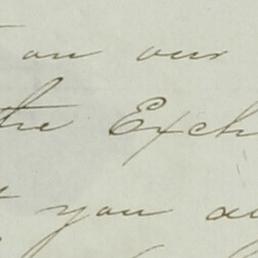 on our
the Exch
you